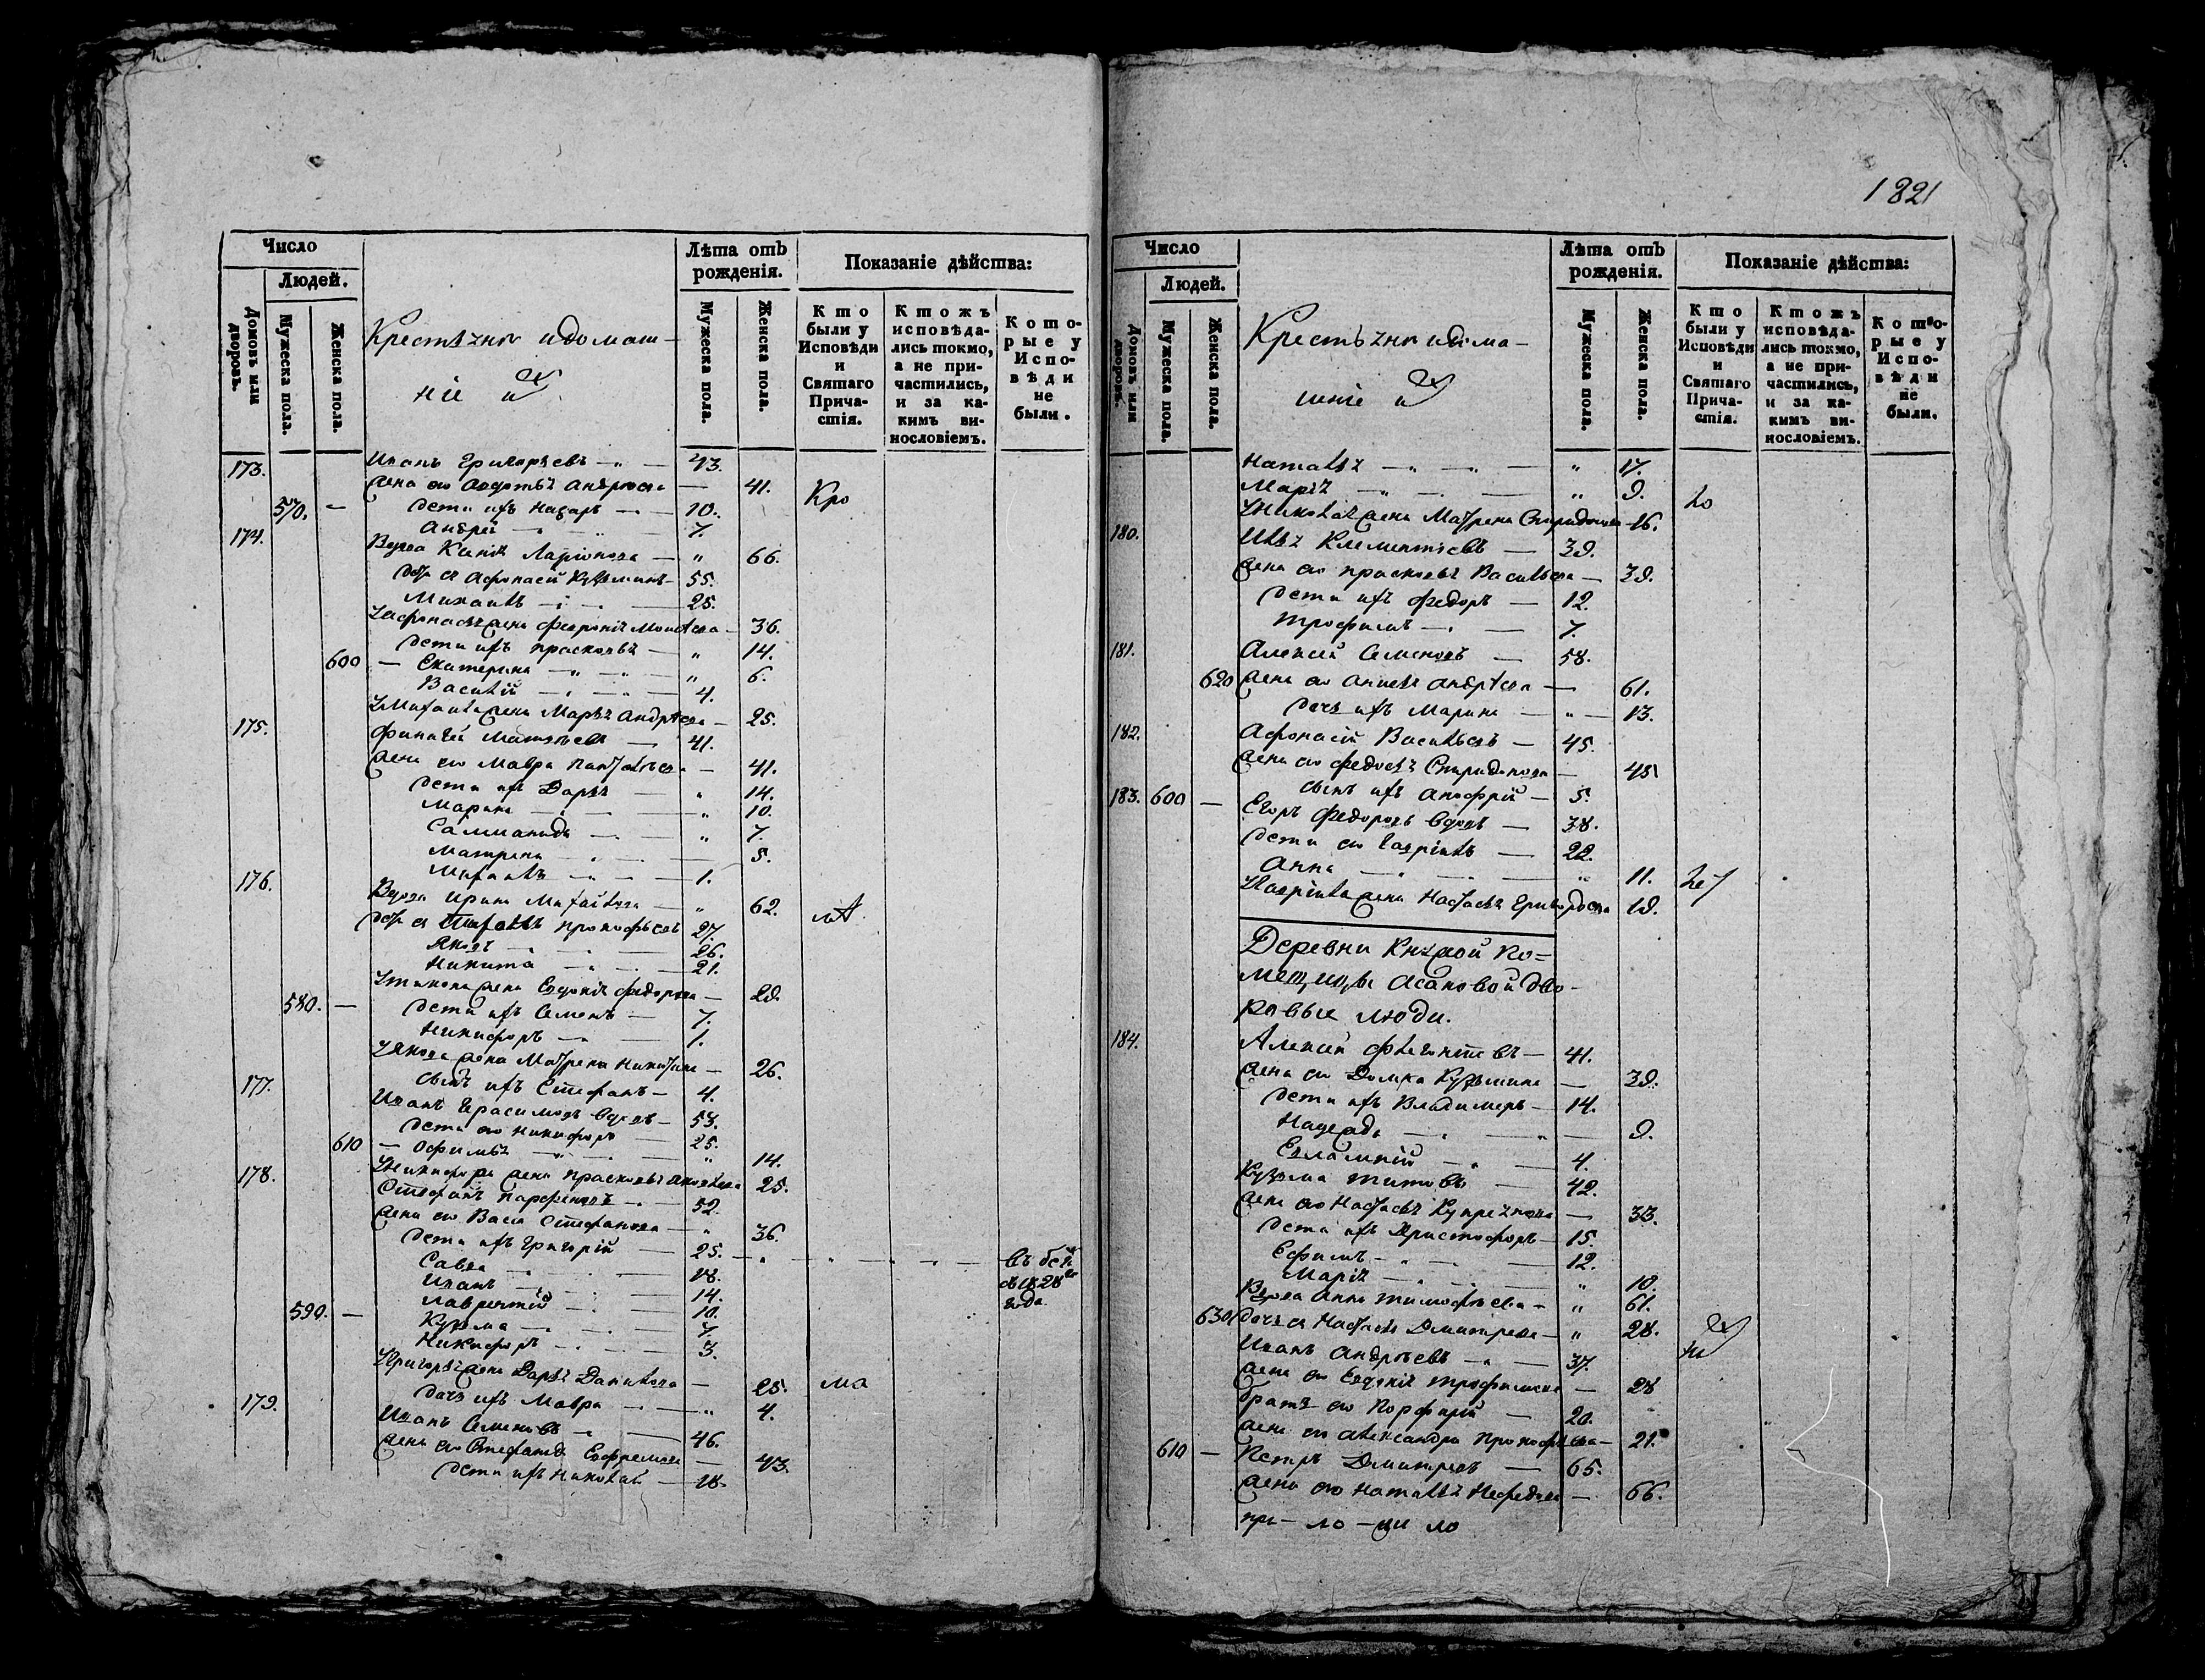 Число
Людей.
Домовъ или дворовъ.
Мужеска пола.
Женска пола.
Крестьяня и домаш-
ніе ихъ
Лѣта отъ рожденія.
Мужеска пола.
Женска пола.
Показаніе дѣйства:
Кто были у Исповѣди и Святаго Причастія.
Ктожъ исповѣдались токмо, а не причастились, и за какимъ винословіемъ.
Которые у Исповѣди не были.
173. Иванъ Григорьевъ 43.
жена его Авдотья Андреева 41.
570. дети ихъ Назаръ 10. Кро
Андрей 7.
174. Вдова Ксенія Ларіонова 66.
дѣти ея Афонасей Кузьминъ 55.
Михаилъ 25.
У Афонасья жена Февронія Моисеева 36.
дети ихъ Прасковья 14.
600 Екатерина 6.
Василій 4.
У Михаила жена Марья Андреева 25.
175. Финагей Матвѣевъ 41.
жена его Мавра Пантелѣева 41.
дети ихъ Дарья 14.
Марина 10.
Саломанида 7.
Матрена 5.
Михаилъ 1.
176. Вдова Ирина Михайлова 62.
дѣти ея Тихонъ Прокофьевъ 27.
Яковъ 26.
Никита 21.
У Тихона жена Евдокія Федорова 29.
580. дети ихъ Семенъ 7.
Никифоръ 1.
У Якова жена Матрена Никитина 26.
сынъ ихъ Стефанъ 4.
177. Иванъ Герасимовъ вдовъ 53.
дети его Никифоръ 25.
610 Офимья 14.
У Никифора жена Прасковья Яковлева 25.
178. Стефанъ Парфеновъ 52.
жена его Васса Стефанова 36.
дети ихъ Григорій 25.
Савва 18.
Иванъ 14.
Лаврентій 10.
590. Кузьма 7.
Никифоръ 3.
У Григорья жена Дарья Данилова 25. ма
дочь ихъ Мавра 4.
179. Иванъ Семеновъ 46.
жена его Стефанида Ефремова 43.
дети ихъ Николай 18.
1821
Число
Людей.
Домовъ или дворовъ.
Мужеска пола.
Женска пола.
Крестьяня и дома-
шніе ихъ
Лѣта отъ рожденія.
Мужеска пола.
Женска пола.
Показаніе дѣйства:
Кто были у Исповѣди и Святаго Причастія.
Ктожъ исповѣдались токмо, а не причастились, и за какимъ винословіемъ.
Которые у Исповѣди не были.
Наталья 17.
Марія 9.
У Николая жена Матрена Спиридонова 16.
180. Илья Клементьевъ 39.
жена его Прасковья Васильева 39.
дети ихъ Федоръ 12.
Трофимъ 7.
181. Алексей Семеновъ 58.
620 жена его Анисья Андреева 61.
дочь ихъ Марина 13.
182. Афонасій Васильевъ 45.
жена его Федосья Спиридонова 45
сынъ ихъ Анофрій 5.
183. 600 Егоръ Федоровъ вдовъ 38.
дети его Гавріилъ 22.
Анна 11.
У Гавріила жена Настасья Григорьева 19.
Деревни Княжой по=
мещицы Асановой дво-
ровые люди.
184. Алексей Флегонтовъ 41.
жена его Домна Кузьмина 39.
дети ихъ Владимеръ 14.
Надежда 9.
Евлампій 4.
Кузьма Титовъ 42.
жена его Настасья Купреянова 33.
дети ихъ Христофоръ 15.
Ефимъ 12.
Марія 10.
Вдова Анна Тимофѣева 61.
630 дочь ея Настасья Дмитрева 28.
Иванъ Андрѣевъ 37.
жена его Евдокія Трофимова 28
братъ его Порфирій 20.
жена его Александра Прокофьева 21.
610 Петръ Дмитревъ 65.
жена его Наталья Нефедова 66.